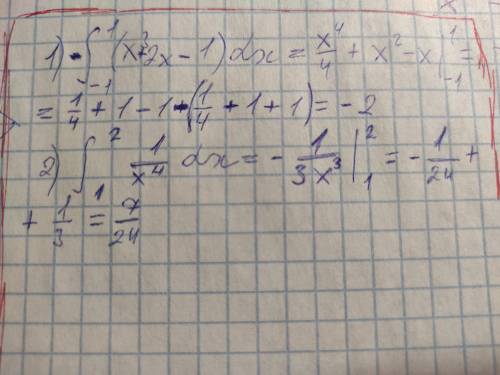 1) ∫₋₁¹ (x³+2x-1) dx = x⁴/4 + x² - x |₋₁¹ =
= 1/4 + 1 - 1 - (1/4 + 1 + 1) = -2
2) ∫₁² 1/x⁴ dx = - 1/3x³ |₁² = - 1/24 +
+ 1/3 = 7/24